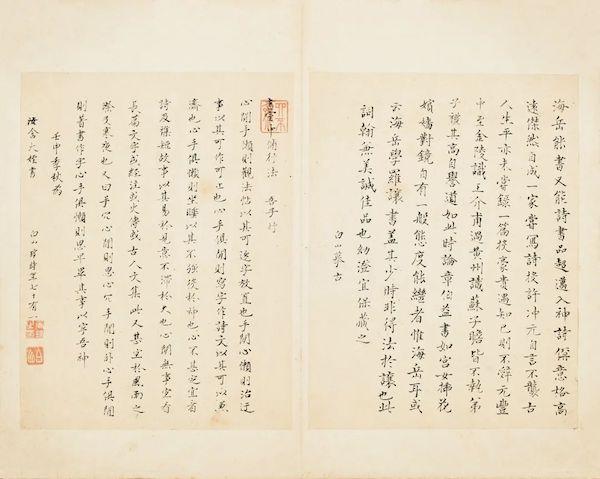 海岳能書又能詩書品超邁入神詩儗意格高
遠傑然自成一家嘗寫詩投許冲元自言不襲古
人生平亦未嘗錄一篇投豪貴遇知己則不辭元豐
中至金陵識王介甫過黃州識蘇子瞻皆不執弟
子禮其高自譽道如此時論章伯益書如宮女插花
嬪嬙對鏡自有一般態度能繼者惟海岳耳或
云海岳學羅讓書蓋其少時非得法於讓也此
詞翰兼美誠佳品也幼澄宜保藏之
白山慕古
書室中脩行法
心閒手懶則觀法帖以其可逐字放置也手閒心懶則治迂
事以其可作可止也心手俱閒則寫字作詩文以其可以兼
濟也心手俱懶則坐睡以其不強役於神也心不甚定宜看
詩及雜短故事以其易於見意不滯於久也心閒無事宜看
長篇文字或經註或史傳或古人文集此又甚宜於風雨之
際及寒夜也又曰手冗心閒則思心冗手閒則臥心手俱閒
則著書作字心手俱懶則思早畢其事以寧吾神
壬申季秋為
汝含大檀書
白山 時年七十有一